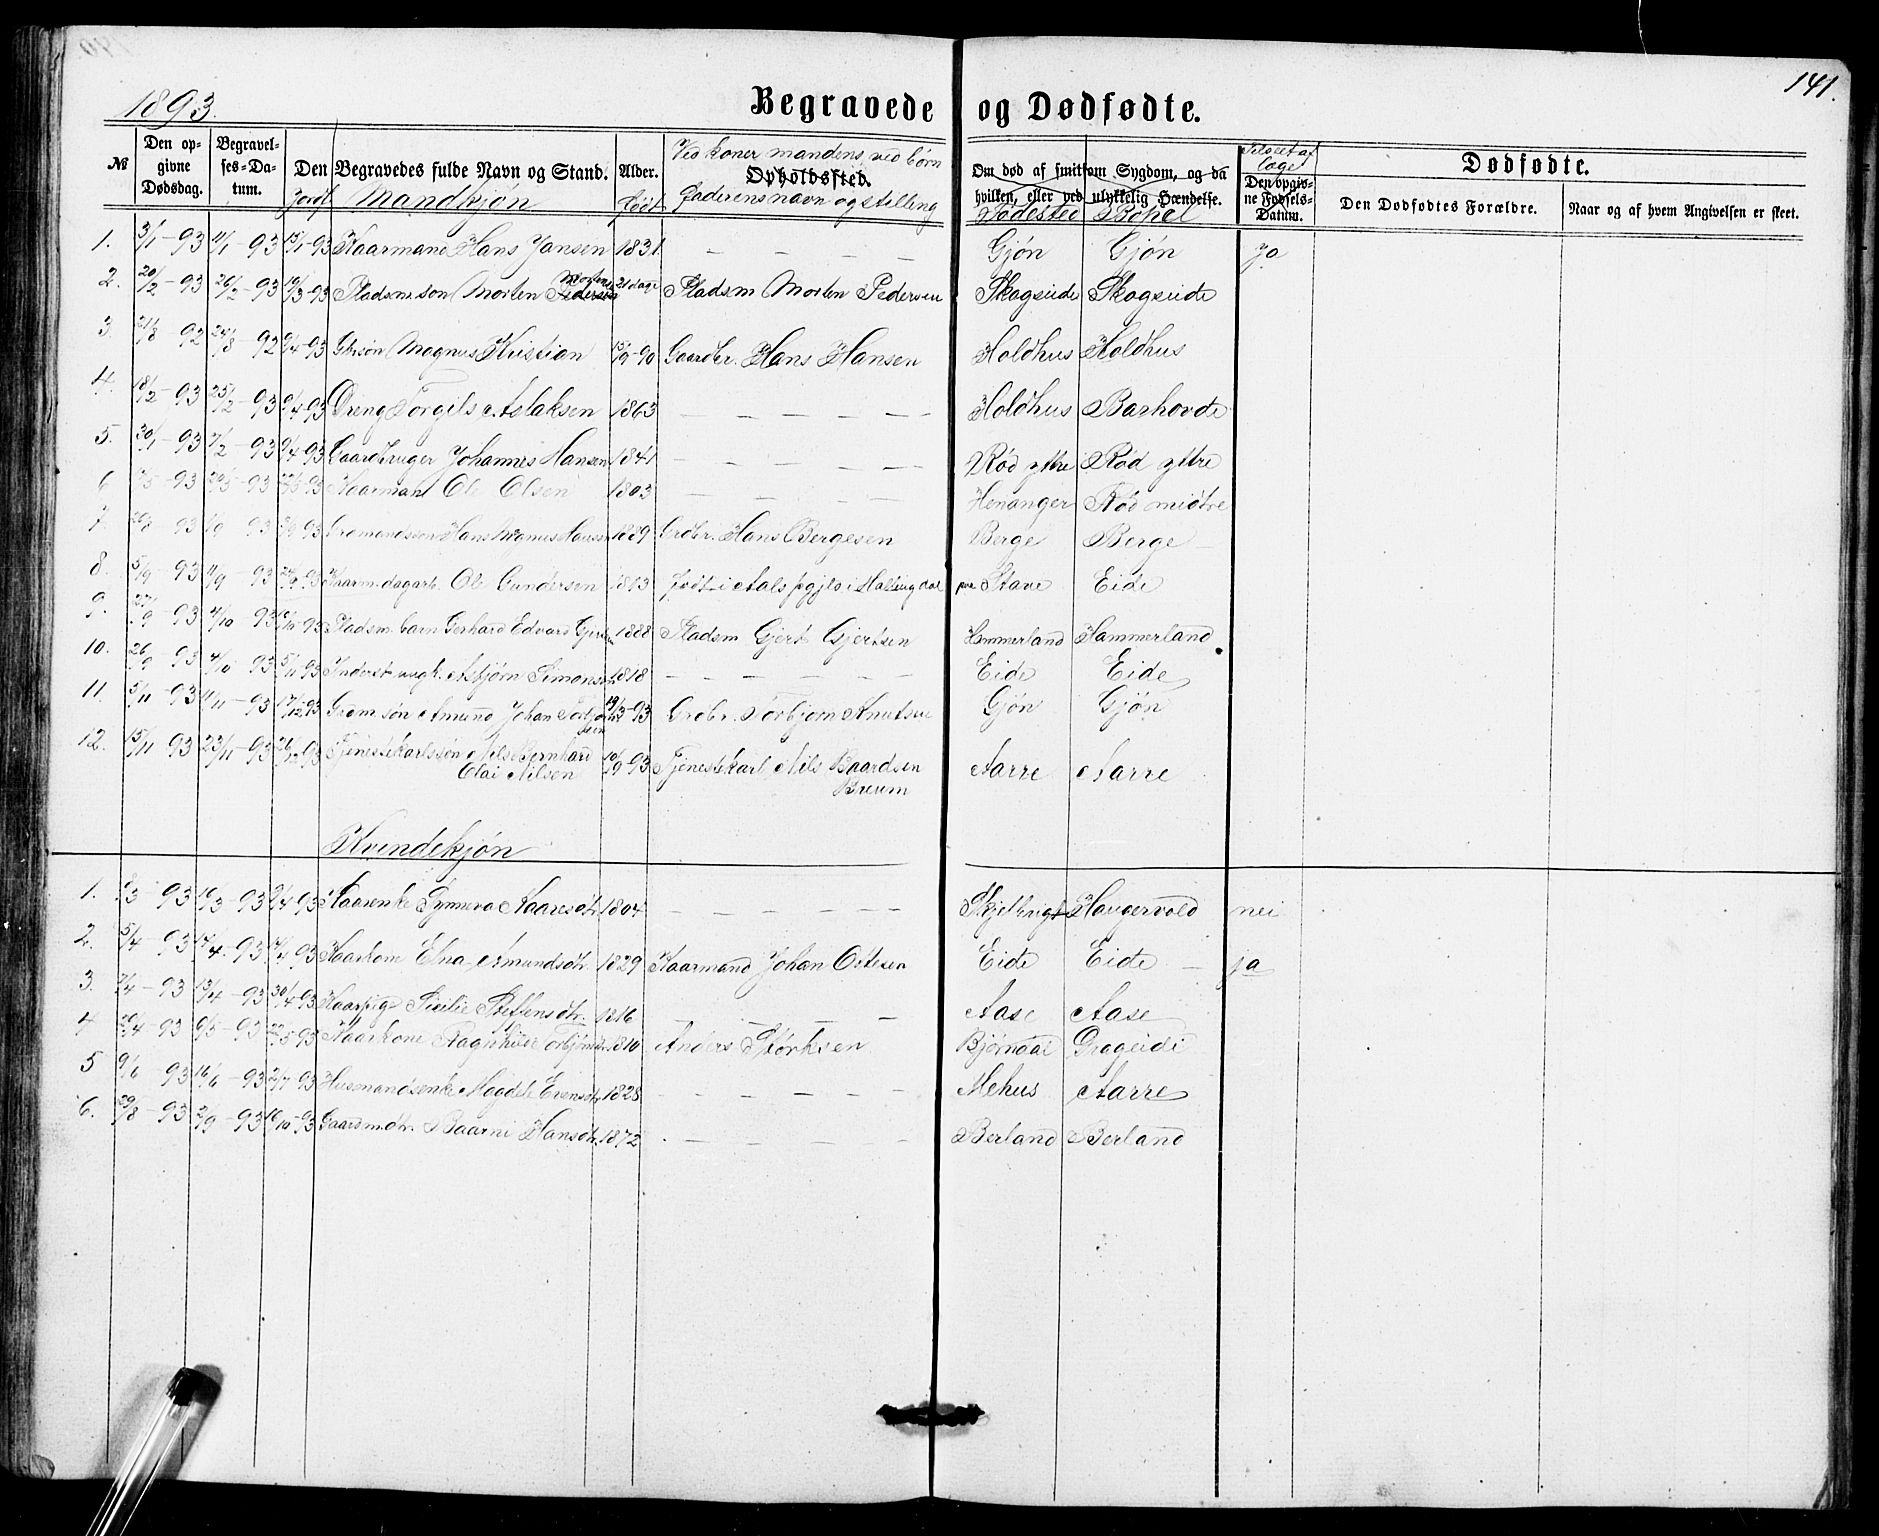 141.
1893.
Begravede og Dødfødte.
№ Den opgivne Dødsdag. Begravelses-Datum. Den Begravedes fulde Navn og Stand. Alder. Ved koner mandens, ved børn Opholdssted. Om død af smitsom Sygdom, og da hvilken, eller ved ulykkelig Hændelse. Tilseet af læge Den opgivne Fødsels-Datum. Dødfødte.
Jordf. Mandkjøn født faderens navn og stilling Dødssted Bopæl Den Dødfødtes Forældre. Naar og af hvem Angivelsen er skeet.
1. 3/1 - 93 11/1 - 93 15/1 - 93 Kaarmand Hans Jansen 1831 — — — — Gjøn Gjøn ja
2. 20/2 - 93 26/2 - 93 19/3 - 93 Pladsm. søn Morten Pedersen Mortens 21 dage Pladsm Morten Pedersen Skogseide Skogseide
3 21/8 92 25/8 - 92 9/4 - 93 Gbrsøn Magnus Kristian 15/9 - 90 Gaardbr. Hans Hansen Holdhus Holdhus
4. 18/2 - 93 25/2 - 93 9/4 - 93 Dreng Torgils Aslaksen 1863 — — — — — Holdhus Barhovde
5. 30/1 - 93 7/2 - 93 9/4 - 93 Gaardbruger Johannes Hansen 1841 — — — — — Rød ytre Rød ytre
6 - 93 - 93 93 Kaarmand Ole Olsen 1803 — — — — Henanger Rød midtre
7. 93 93 93 Grdmandssøn Hans Magnus Hansen 1889 Grdbr. Hans Bergesen Berge Berge
8. 5/9 - 93 11/9 - 93 93 Kaarm. dagarb. Ole Gundersen 1813 født i Aals pgjld i Hallingdal paa Stave Eide
9. 27/9 - 93 4/10 - 93 - 93 Pladsm. barn Gerhard Edvard Gjertsen 1888 Pladsm Gjert Gjertsen Hammerland Hammerland
10. 26/9 - 93 4/10 - 93 5/11 93 Inderst ungk. Asbjørn Simonsen 1818 — — — — — Eide Eide
11. 5/11 - 93 11/11 - 93 17/12 93 Grdm søn Amund Johan Torbjørnsen 19/3 - 93 Grdbr. Torbjørn Knutsen Gjøn Gjøn
12. 15/11 93 23/11 - 93 26/12 93 Tjenestekarlssøn Nils Bernhard Olai Nilsen 10/9 - 93 Tjenestekarl Nils Baardsen Aarre Aarre
Kvindekjøn
1. 93 10/3 - 93 9/4 - 93 Kaarenke Synneva Kaaresdtr. 1804 — — — — — Skjelbugt Haugervold nei
2. 5/4 - 93 14/4 - 93 - 93 Kaarkone Elna Amundsdtr. 1829 Kaarmand Johan Ottesen Eide Eide ja
3. 7/4 - 93 13/4 - 93 30/4 - 93 Kaarpige Sicilie Steffensdtr. 1816 — — — — Aase Aase
4 26/4 - 93 6/5 - 93 - 93 Kaarkone Ragnhilde Torbjørnsdtr. 1810 Anders Størksen Bjørndal Drageidi
5 9/6 - 93 16/6 - 93 2/7 - 93 Husmandsenke Magdele Evensdtr. 1828 — — — — — Mehus Aarre
6. 29/8 - 93 2/9 - 93 - 93 Gaardm.dtr. Baarni Hansdtr. 1872 — — — — Berland Berland